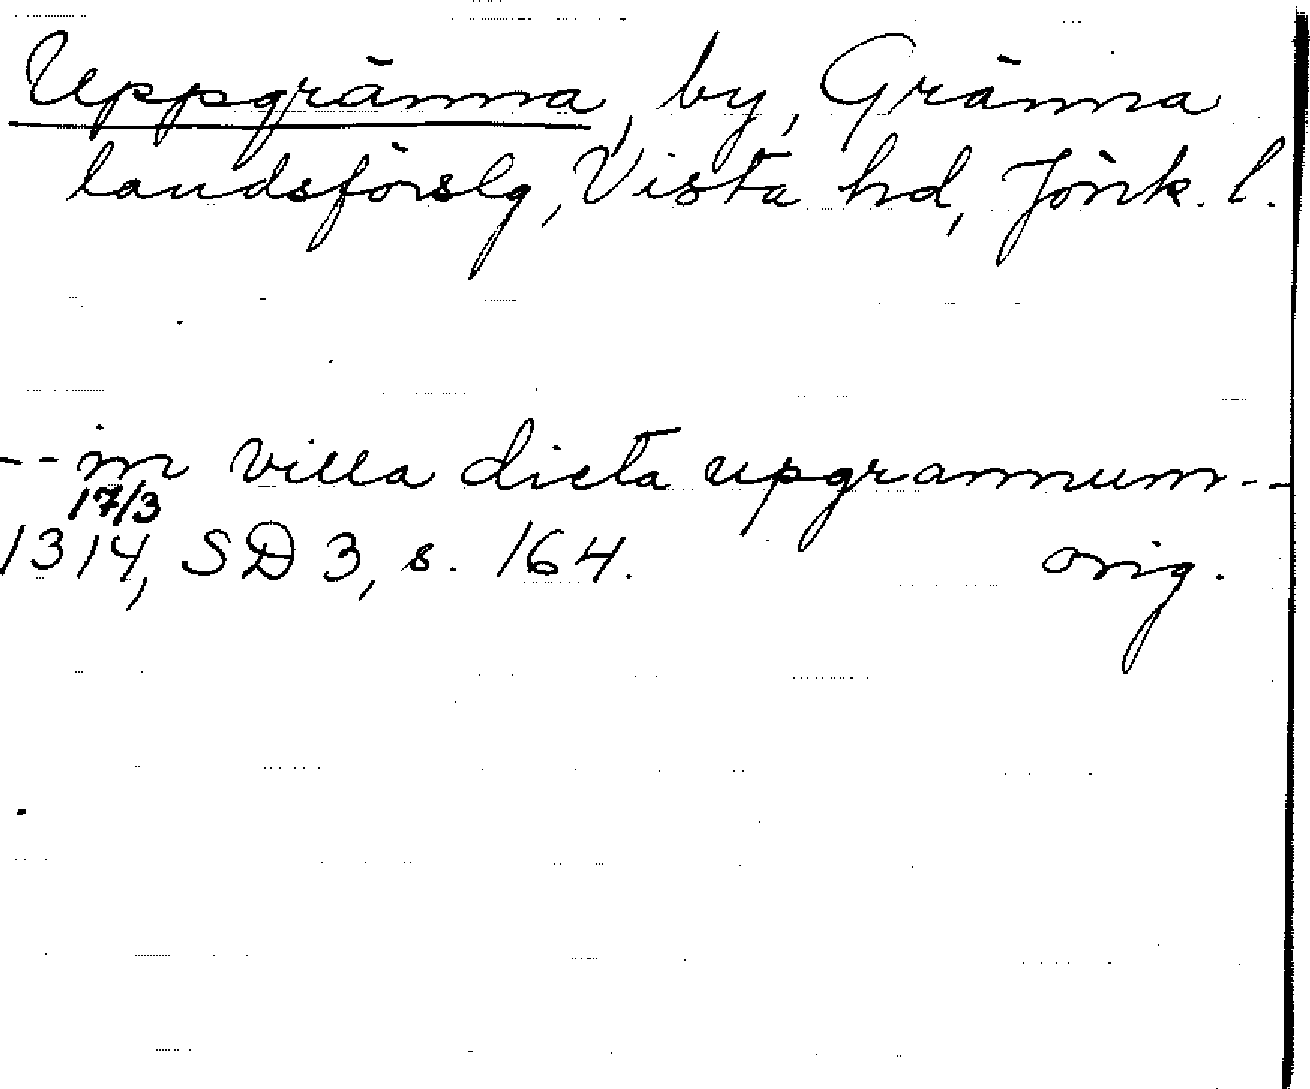 Uppgränna, by, Gränna
landsförslg, Vista hd, Jönk. l.
-- in villa dicta upgrannum --
17/3
1314, SD 3, s. 164. orig.